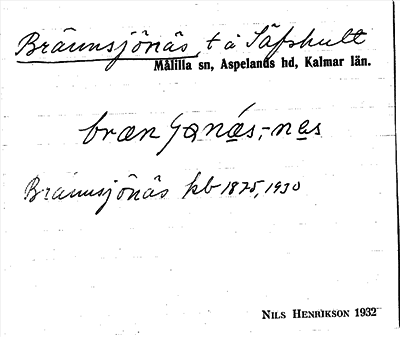 Brännsjönäs, t å Säfshult
Målilla sn, Aspelands hd, Kalmar län.
bræn
Brännsjönäs kb 1875, 1930
NILS HENRIKSON 1932